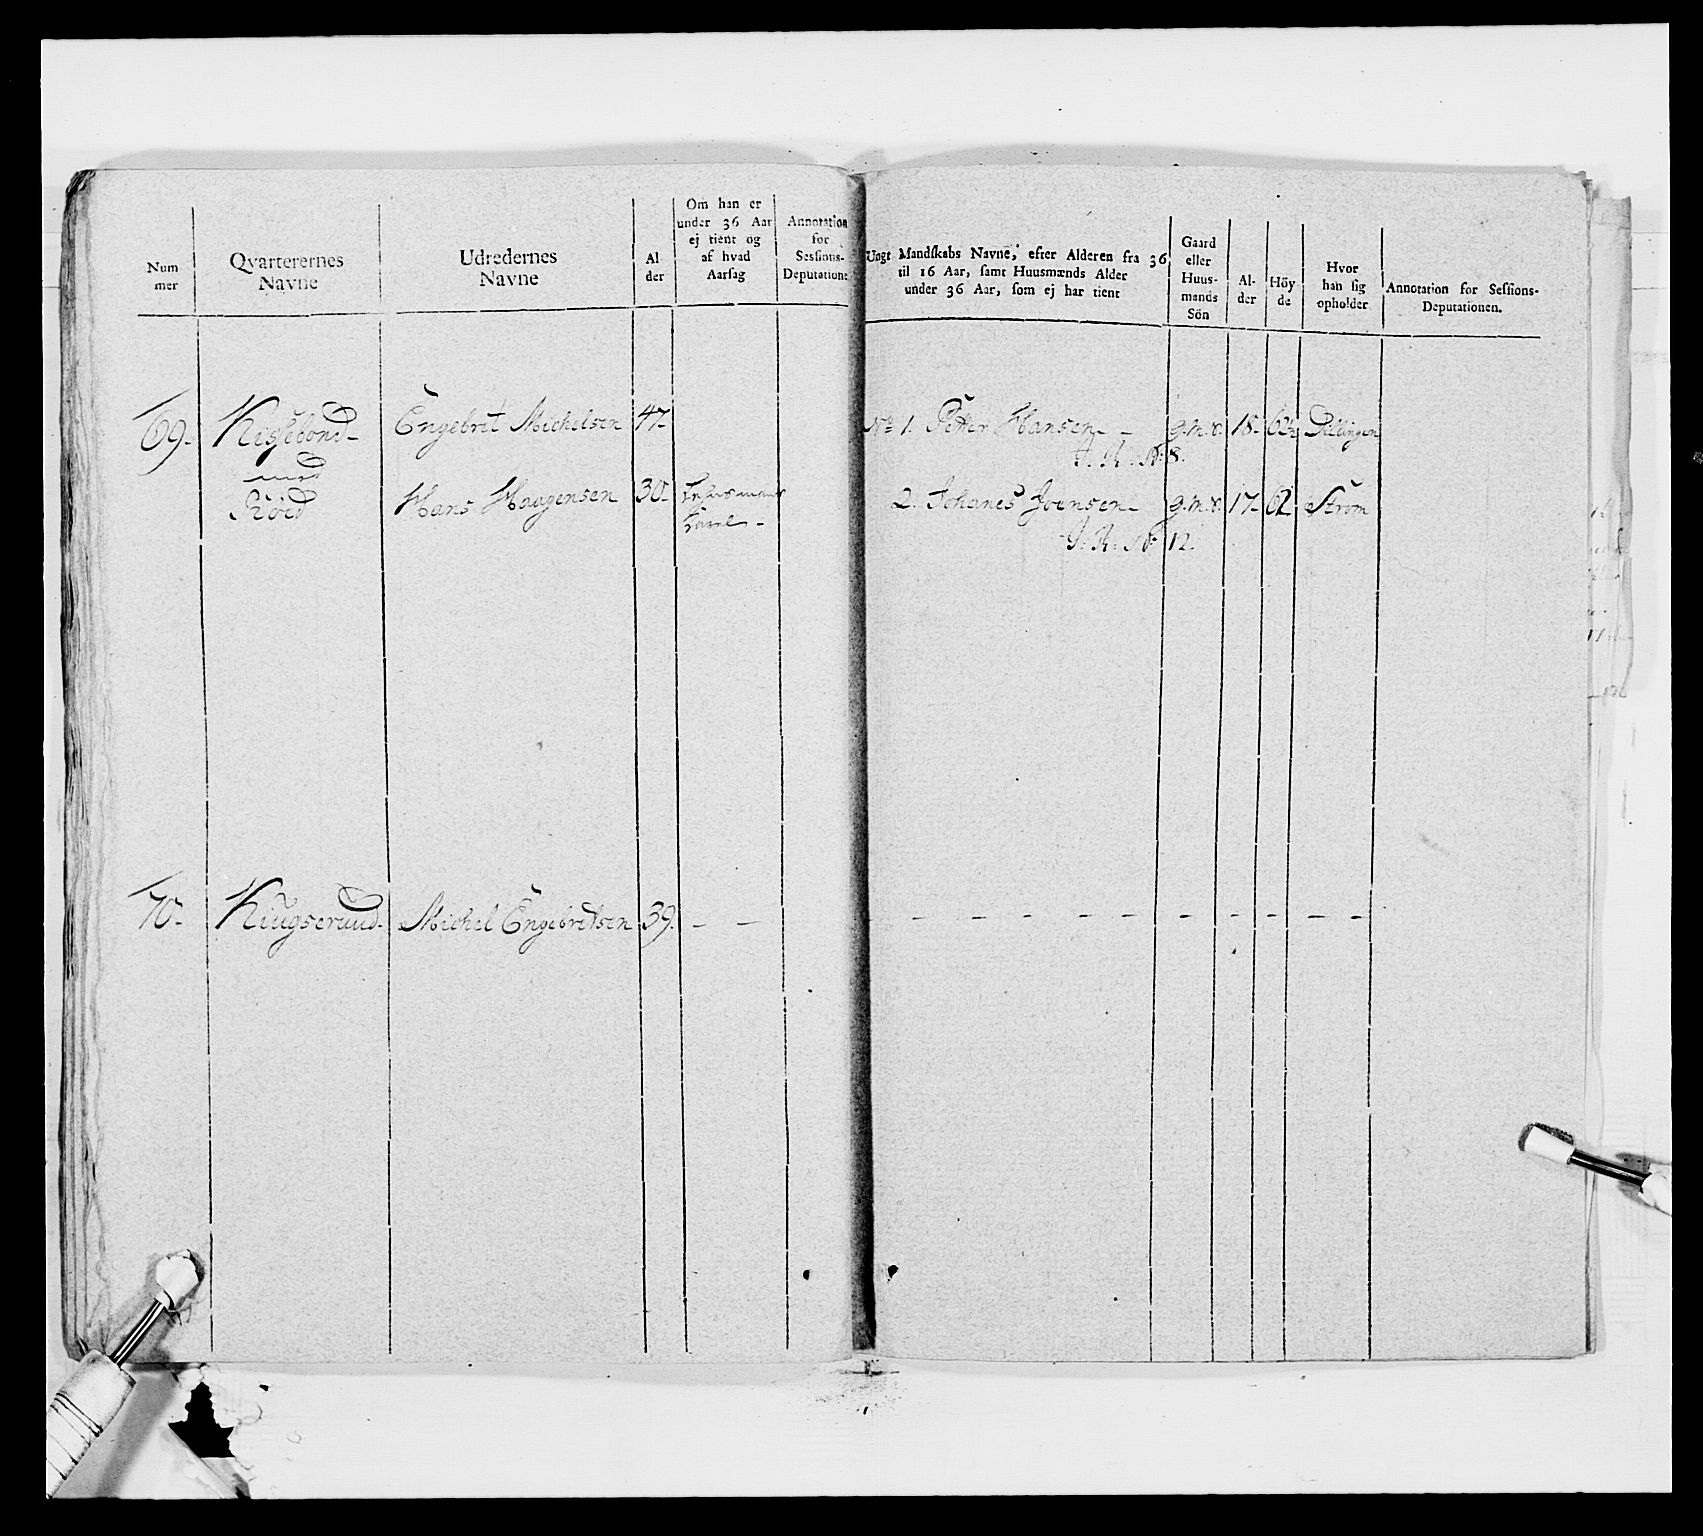 Num
mer
Qvarterernes
Navne
Udredernes
Navne
Al
der
Om han er
under 36 Aar
ej tient og
af hvad
Aarsag
Annotation
for
Sessions-
Deputationen
Ungt Mandskabs Navne, efter Alderen fra 36
til 16 Aar, samt Huusmænds Alder
under 36 Aar, som ej har tient
Gaard
eller
Huus-
mands
Sön
Al-
der
Höy
de
Hvor
han sig
opholder
Annotation for Sessions-
Deputationen.
69. Kissebond- Engebret Michelsen 47-
med
Röed Hans Haagensen 30-
Karl -
No 1. Petter Hansen - g.m.s. 18- 62½ Dillingen
I. R. No 8.
2. Johanes Joensen- g.m.s. 17- 62 Strøm
I. R. No 12.
70- Kiugseruud- Michel Engebretsen 39. - -
- - - - - - - - - - -